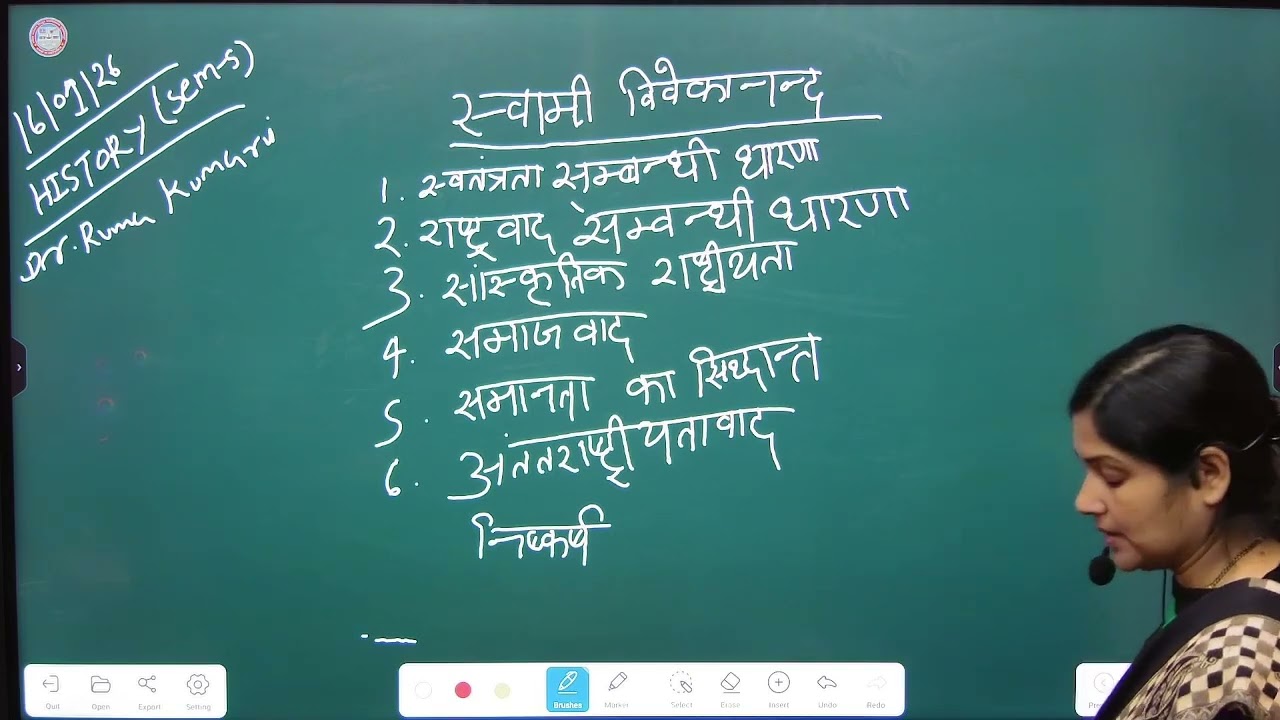 16/09/26
HISTORY (sem-5)
Dr. Ruma Kumari
स्वामी विवेकानन्द
1. स्वतंत्रता सम्बन्धी धारणा
2. राष्ट्रवाद सम्वन्धी धारणा
3. सांस्कृतिक राष्ट्रीयता
4. समाजवाद
5. समानता का सिध्दान्त
6. अंतंतराष्ट्रीयतावाद
निष्कर्ष
Quit Open Export Setting
Brushes Marker Select Erase Insert Undo Redo